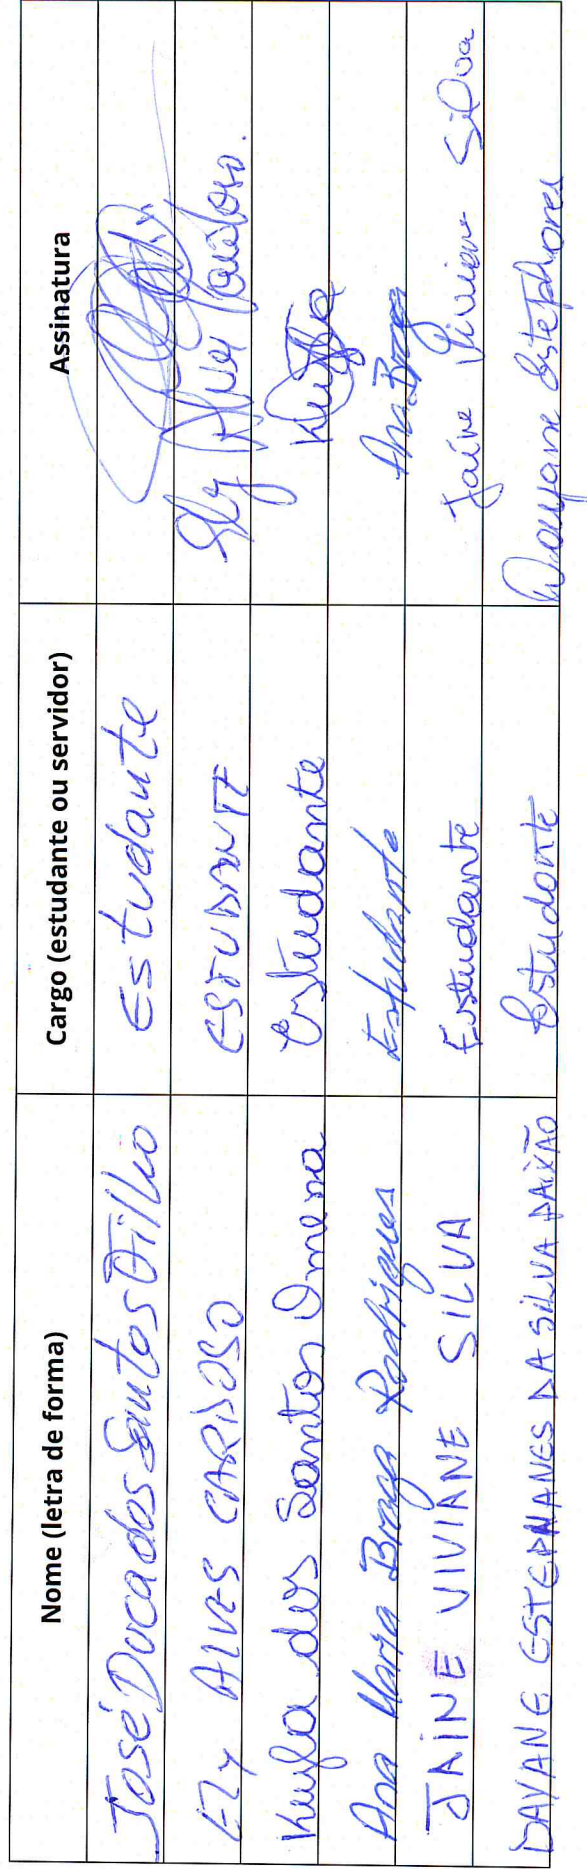 Nome (letra de forma) Cargo (estudante ou servidor) Assinatura
José Duca dos Santos Filho Estudante
Ely ALVES CARDOSO ESTUDANTE Ely Alves Cardoso.
Keyla dos Santos Omena Estudante Keyla
Ana Maria Braga Rodrigues Estudante Ana Braga
JAINE VIVIANE SILVA Estudante Jaine Viviane Silva
DAYANE ESTEPHANES DA SILVA PAIXÃO Estudante Dayane Estephanes